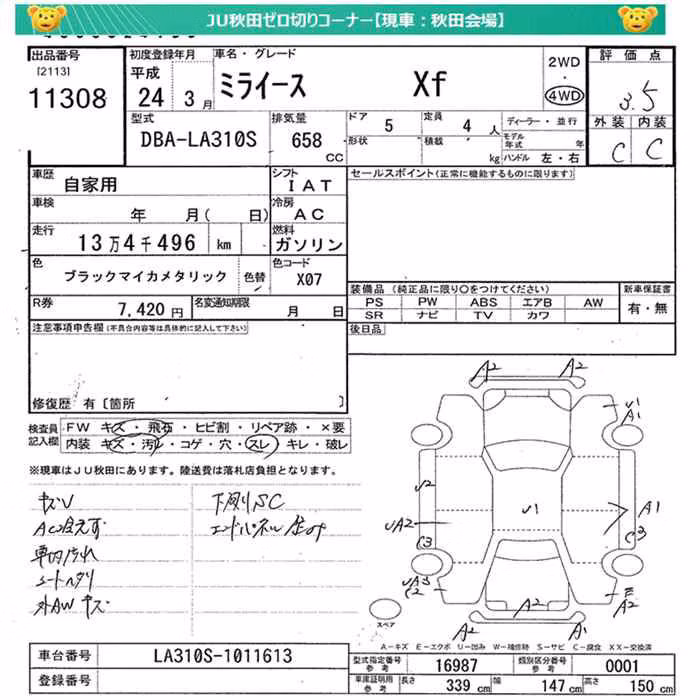 JU秋田ゼロ切りコーナー【現車：秋田会場】
出品番号
[2113]
11308
初度登録年月
平成
24 3月
車名・グレード
ミライース Xf
2WD
・
4WD
評価点
3.5
外装 内装
C C
型式
DBA-LA310S
排気量
658
CC
ドア 5
定員 4 人
形状
積載 kg
ディーラー・並行
モデル年式 年
ハンドル 左・右
車歴
自家用
シフト
IAT
車検
年 月( 日)
冷房
AC
走行
13万4千496 km
燃料
ガソリン
色
ブラックマイカメタリック
色替
色コード
X07
R券
7,420円
名変通知期限
月 日
セールスポイント(正常に機能するものに限ります)
装備品 (純正品に限り○をつけてください)
PS PW ABS エアB AW
SR ナビ TV カワ
新車保証書
有・無
後日品
注意事項申告欄(不具合内容等は具体的に記入して下さい)
修復歴 有〔箇所 〕
検査員記入欄
FW キズ・飛石・ヒビ割・リペア跡・×要
内装 キズ・汚レ・コゲ・穴・スレ・キレ・破レ
※現車はJU秋田にあります。陸送費は落札店負担となります。
キズU
AC冷えず
車内汚れ
シートヘタリ
外AWキズ
下廻りSC
エンドパネル
A2 A2
U1
A1
U2
U1
A1
UA2
C3
C3
C2
A2
A2
A2 A1
スペア
A－キズ E－エクボ U－凹み W－補修跡 S－サビ C－腐食 XX－交換済
車台番号
LA310S-1011613
登録番号
型式指定番号
参考
16987
類別区分番号
参考
0001
車庫証明用
参考
長さ 339 cm
幅 147 cm
高さ 150 cm